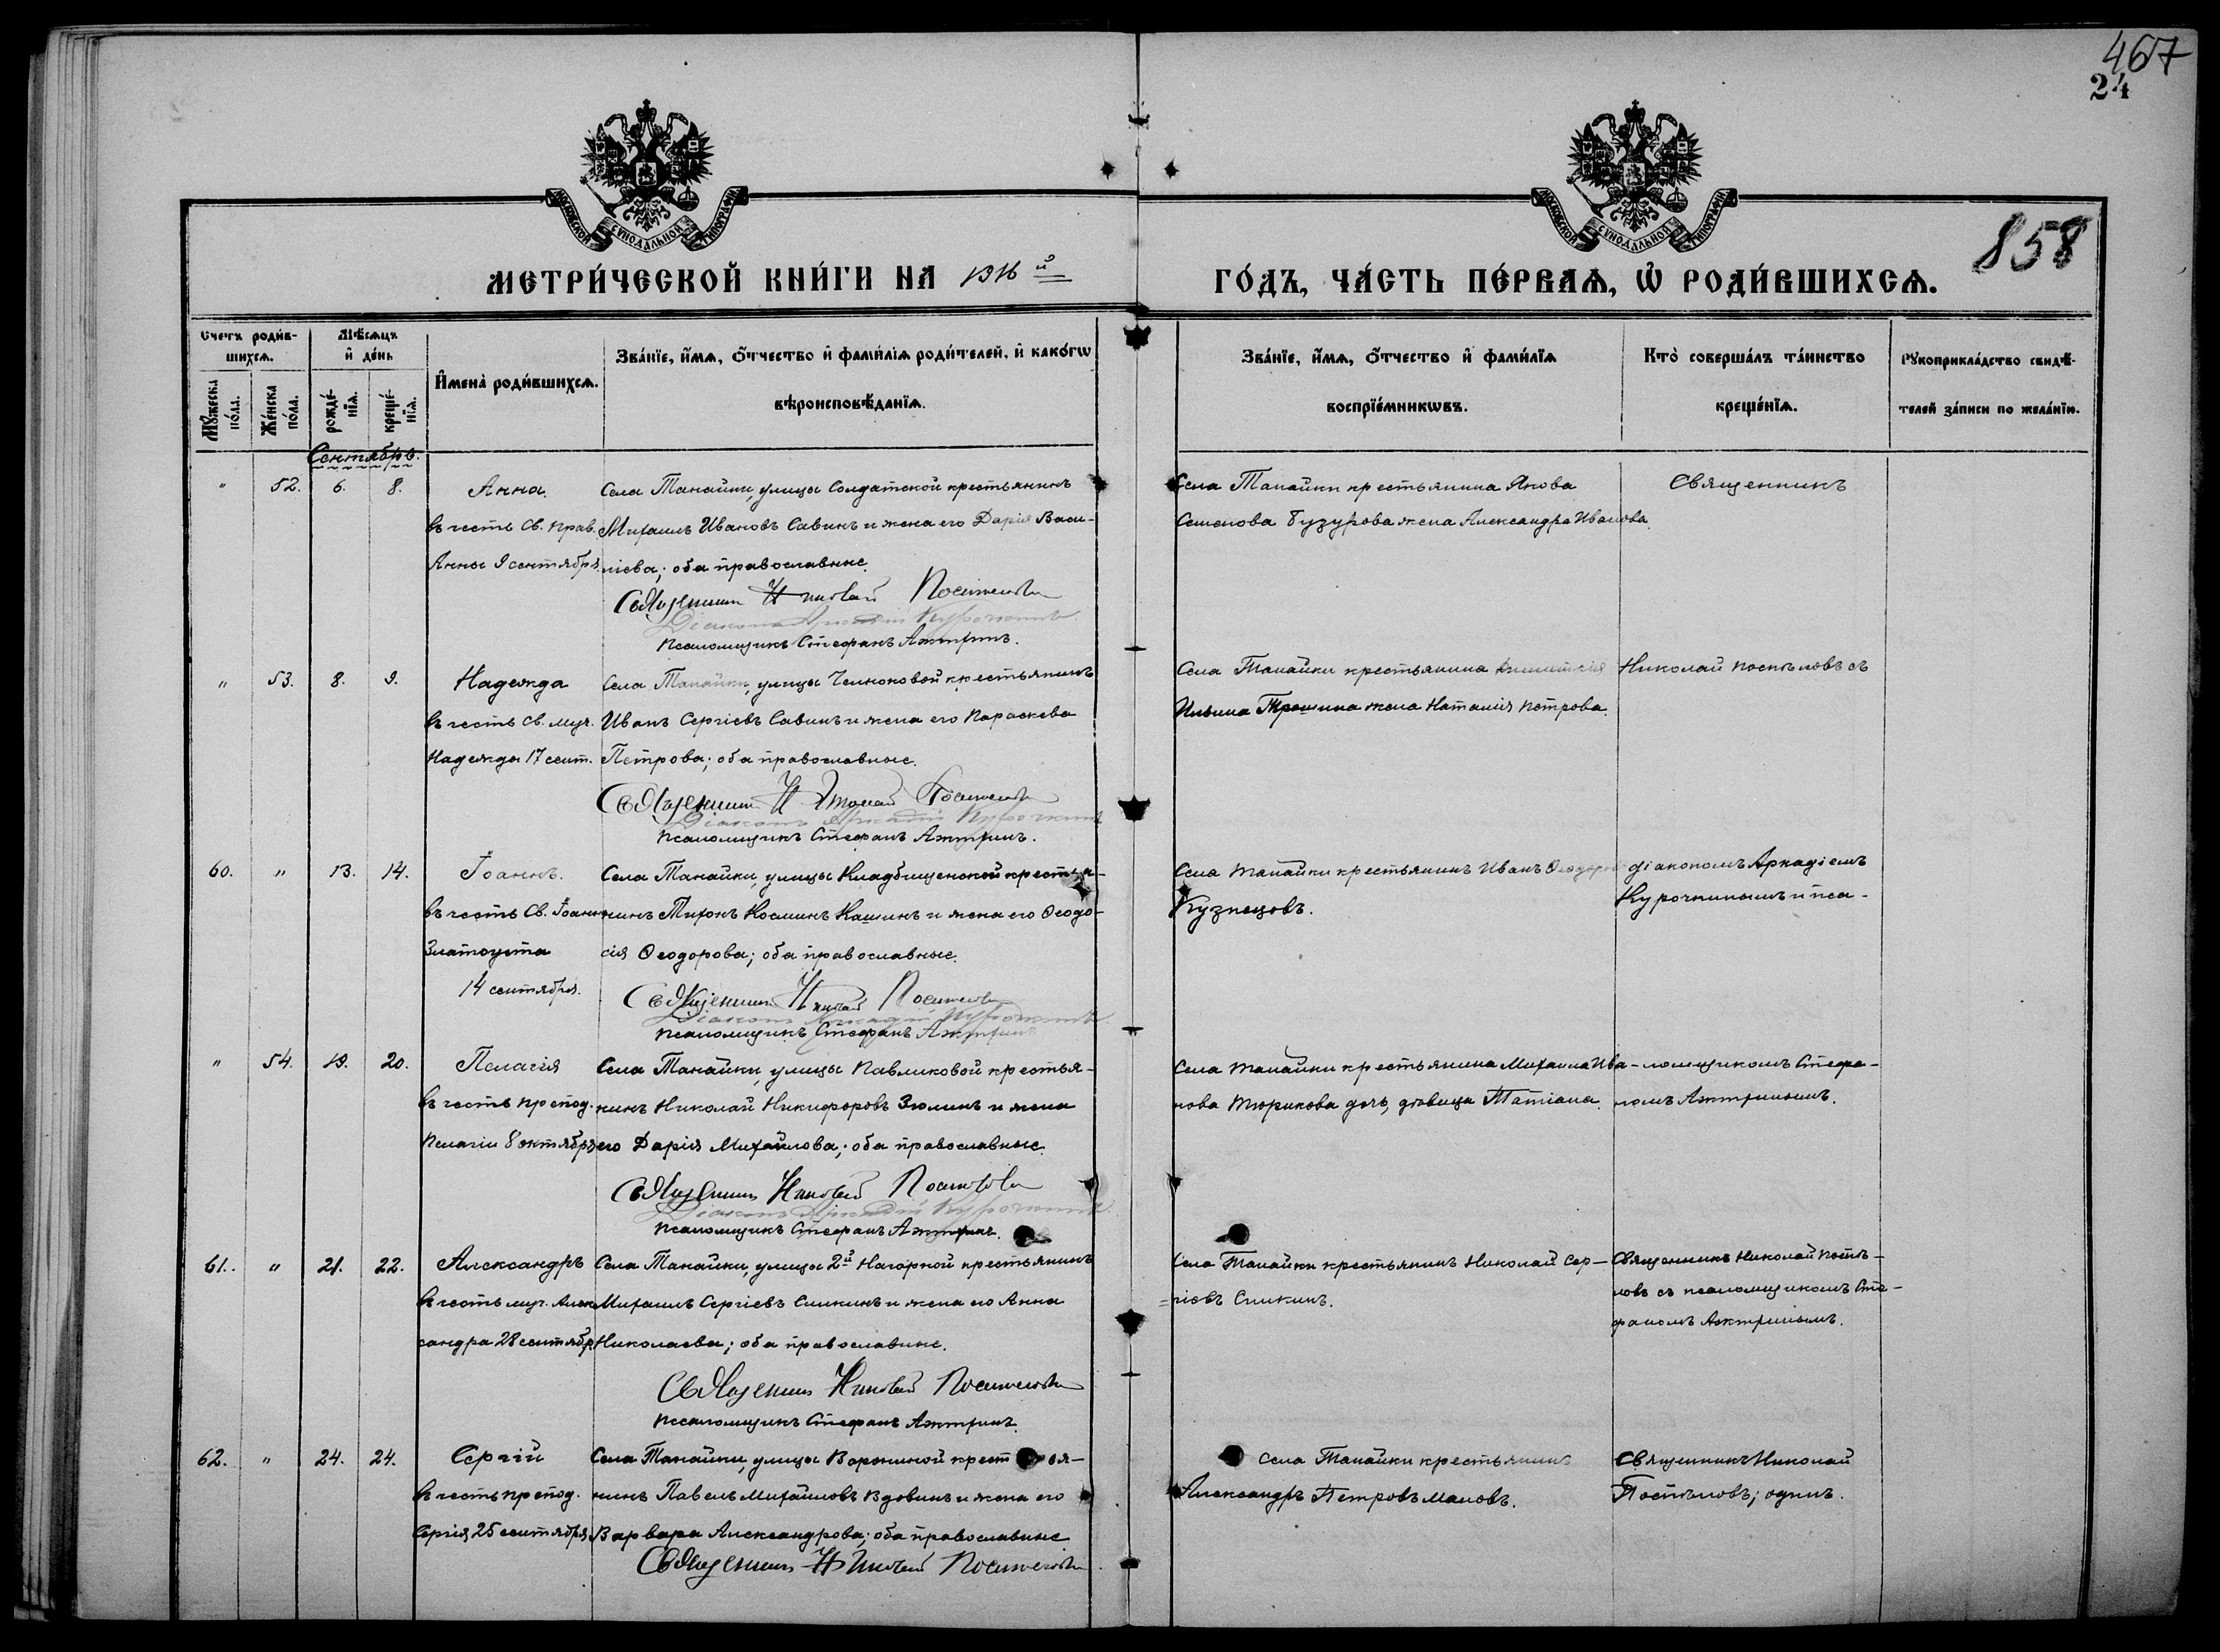 467
24
858
МОСКОВСКОЙ СѴНОДАЛЬНОЙ ТИПОГРАФІИ
МОСКОВСКОЙ СѴНОДАЛЬНОЙ ТИПОГРАФІИ
МЕТРИ́ЧЕСКОЙ КНИ́ГИ НА 1916 й
ГО́ДЪ, ЧА́СТЬ ПЕ́РВАѦ, Ѡ҆ РОДИ́ВШИХСѦ.
Счетъ роди́в-
шихсѧ.
Мѣ́сѧцъ
и҆ де́нь
Мꙋ́жеска по́ла.
Же́нска по́ла.
рожде́-
нїѧ.
креще́-
нїѧ.
И҆мена̀ роди́вшихсѧ.
Зва́нїе, и҆́мѧ, ѻ҆́тчество и҆ фами́лїѧ роди́телей, и҆ како́гѡ
вѣроисповѣ́данїѧ.
Зва́нїе, и҆́мѧ, ѻ҆́тчество и҆ фами́лїѧ
воспрїе́мникѡвъ.
Кто̀ соверша́лъ та́инство
креще́нїѧ.
Рꙋкоприкла́дство свидѣ́-
телей за́писи по жела́нїю.
Сентябрь.
" 52. 6. 8. Анна.
въ честь Св. прав.
Анны 9 сентября.
Села Танайки, улицы Солдатской крестьянинъ
Михаилъ Ивановъ Савинъ и жена его Дарія Васи-
ліева; оба православные.
Священникъ Николай Поспѣловъ
Діаконъ Аркадій Курочкинъ
Псаломщикъ Стефанъ Ахтринъ.
Села Танайки крестьянина Якова
Семенова Бузурова жена Александра Иванова.
Священникъ
" 53. 8. 9. Надежда
въ честь св. муч.
Надежды 17 сент.
Села Танайки, улицы Челноковой крестьянинъ
Иванъ Сергіевъ Савинъ и жена его Параскева
Петрова; оба православные.
Священникъ Николай Поспѣловъ
Діаконъ Аркадій Курочкинъ
Псаломщикъ Стефанъ Ахтринъ.
Села Танайки крестьянина
Ильина Трошина жена Наталія Петрова.
Николай Поспѣловъ съ
60. " 13. 14. Іоаннъ.
въ честь Св. Іоанна
Златоуста
14 сентября.
Села Танайки, улицы Кладбищенской крестья-
нинъ Тихонъ Косминъ Кашинъ и жена его Ѳеодо-
сія Ѳеодорова; оба православные.
Священникъ Николай Поспѣловъ
Діаконъ Аркадій Курочкинъ
Псаломщикъ Стефанъ Ахтринъ
Села Танайки крестьянинъ Иванъ
Кузнецовъ.
діакономъ Аркадіемъ
Курочкинымъ и пса-
" 54. 19. 20. Пелагія
въ честь препод.
Пелагіи 8 октября
Села Танайки, улицы Павликовой крестья-
нинъ Николай Никифоровъ Зюлинъ и жена
его Дарія Михайлова; оба православные.
Священникъ Николай Поспѣловъ
Діаконъ Аркадій Курочкинъ
Псаломщикъ Стефанъ Ахтринъ.
Села Танайки крестьянина Михаила Ива-
нова Тюрикова дочь, дѣвица Татіана.
ломщикомъ Стефа-
номъ Ахтринымъ.
61. " 21. 22. Александръ
въ честь муч. Алек
сандра 28 сентябр.
Села Танайки, улицы 2й Нагорной крестьянинъ
Михаилъ Сергіевъ Симкинъ и жена его Анна
Николаева; оба православные.
Священникъ Николай Поспѣловъ
Псаломщикъ Стефанъ Ахтринъ.
Села Танайки крестьянинъ Николай Сер-
гіевъ Симкинъ.
Священникъ Николай Поспѣ-
ловъ съ псаломщикомъ Сте-
фаномъ Ахтринымъ.
62. " 24. 24. Сергій
въ честь препод.
Сергія 25 сентября
Села Танайки, улицы Ворониной крестья-
нинъ Павелъ Михайловъ Вдовинъ и жена его
Варвара Александрова; оба православные
Священникъ Николай Поспѣловъ
Села Танайки крестьянинъ
Александръ Петровъ Маловъ.
Священникъ Николай
Поспѣловъ; одинъ.